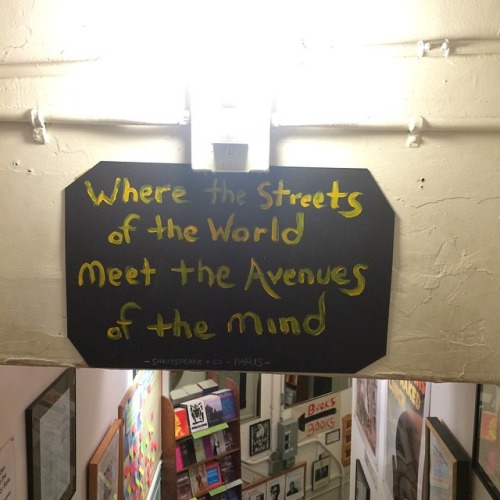 Where the Streets
of the World
meet the Avenues
of the mind
- SHAKESPEARE + CO - PARIS -
BOOKS
BOOKS